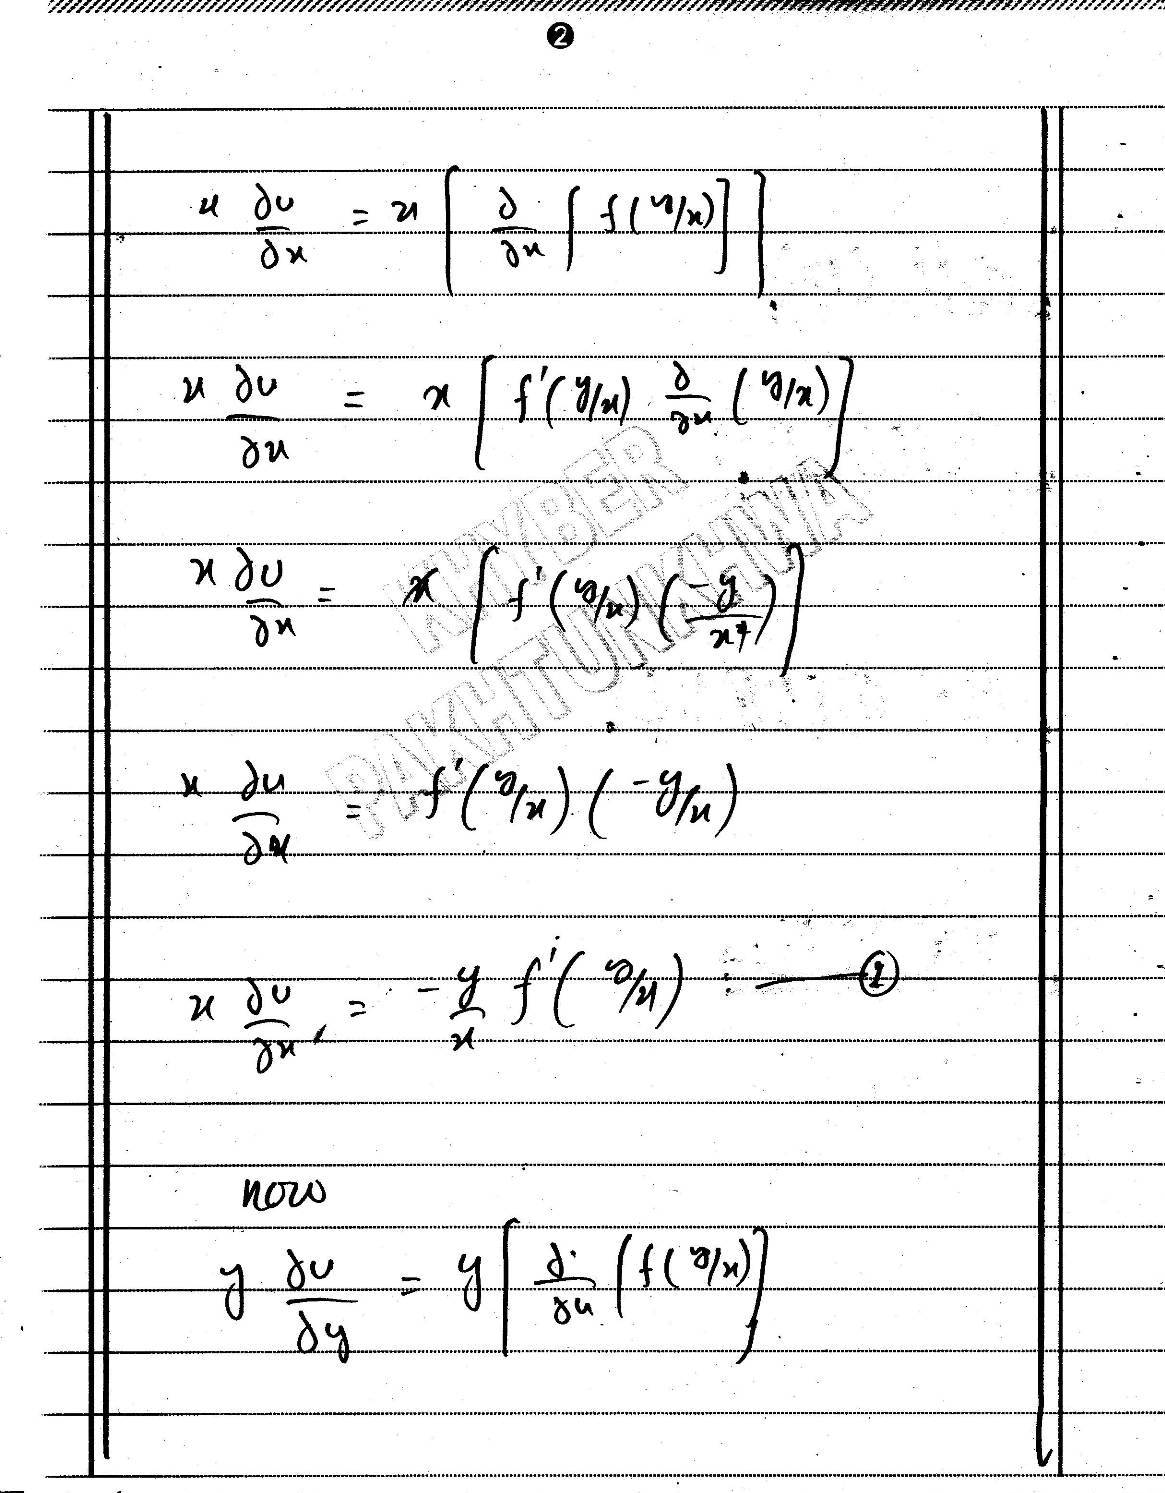 2
x ∂u/∂x = x [ ∂/∂x [ f(y/x) ] ]
x ∂u/∂x = x [ f'(y/x) ∂/∂x (y/x) ]
x ∂u/∂x = x [ f'(y/x) (-y/x²) ]
x ∂u/∂x = f'(y/x) (-y/x)
x ∂u/∂x = -y/x f'(y/x) : —— ①
now
y ∂u/∂y = y [ ∂/∂x ( f(y/x) ]
KHYBER
PAKHTUNKHWA